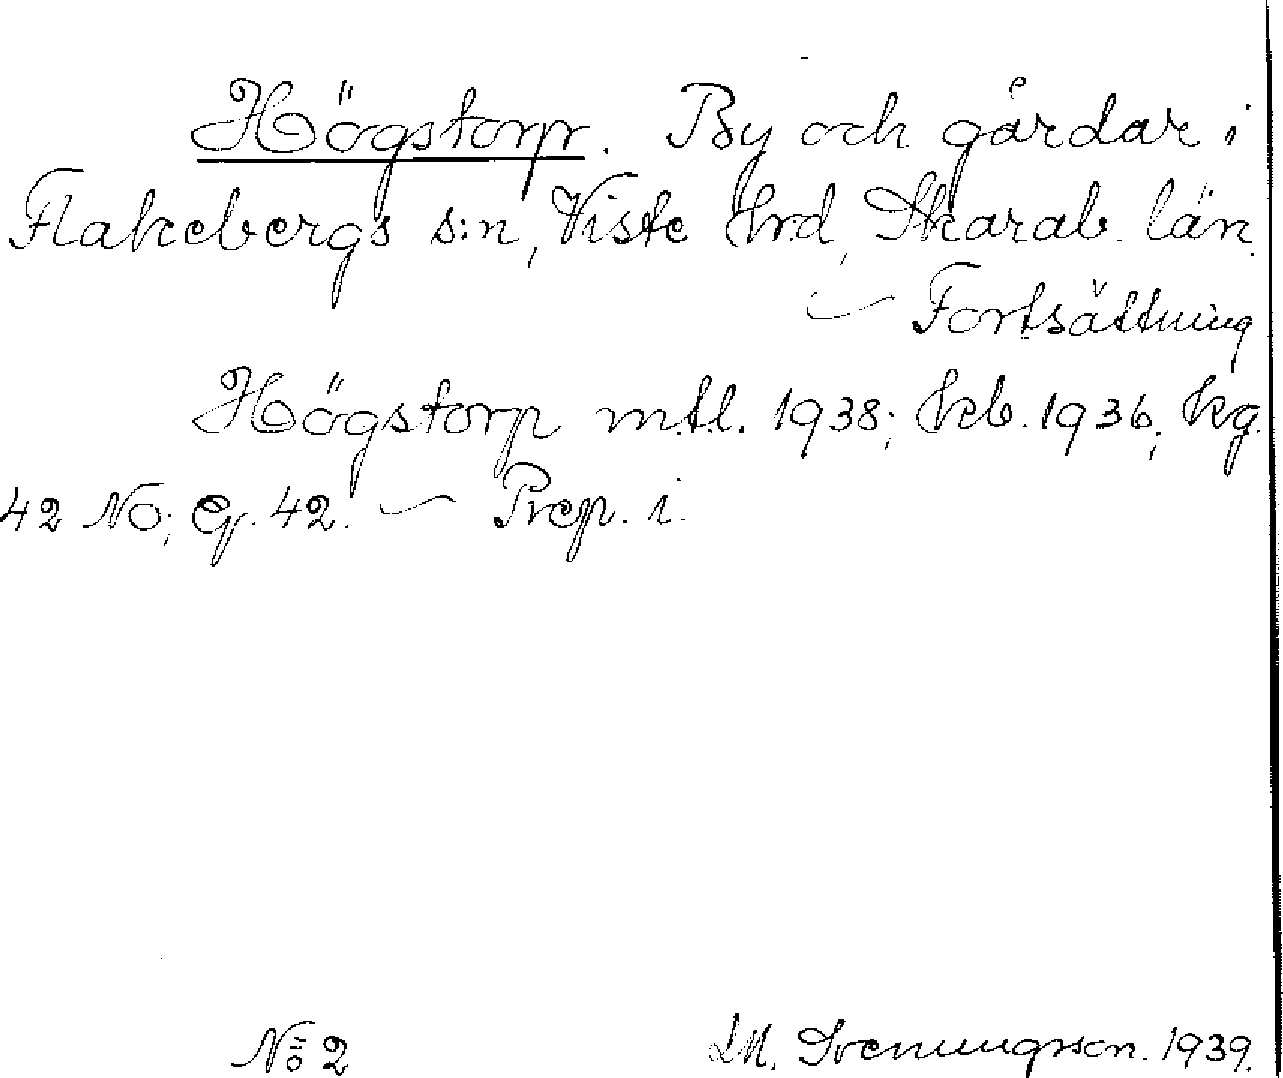 Högstorp. By och gårdar i
Flakebergs s:n, Viste hrd, Skarab. län.
— Fortsättning
Högstorp mtl. 1938; kb. 1936; kg.
42 NO; G. 42. — Prep. i.
No 2
J.M. Svenungsson. 1939.